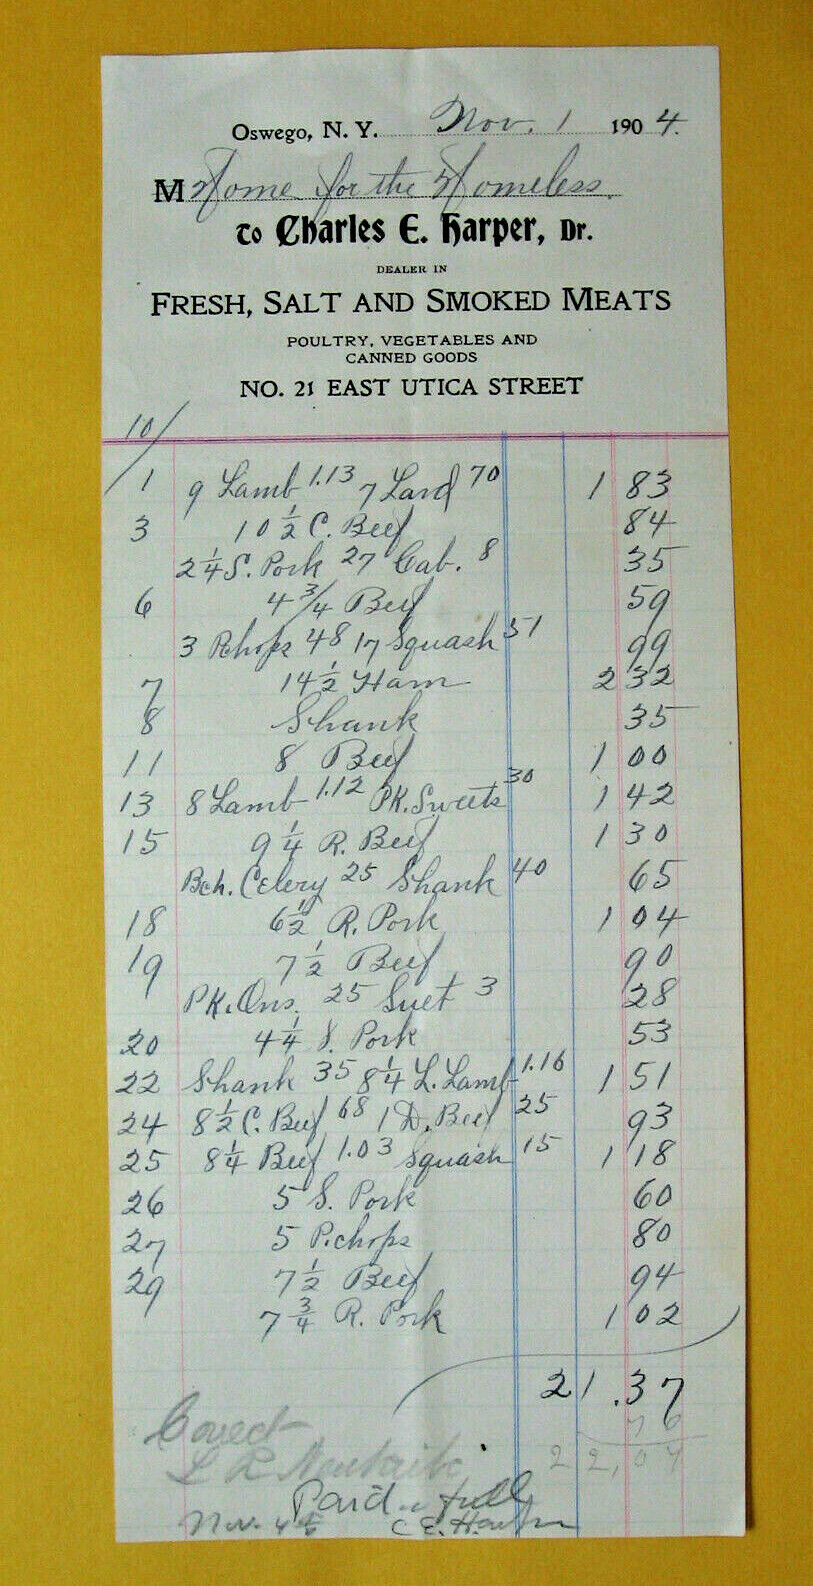 Oswego, N. Y. Nov. 1 1904.
M Home for the Homeless
To Charles E. Harper, Dr.
DEALER IN
FRESH, SALT AND SMOKED MEATS
POULTRY, VEGETABLES AND
CANNED GOODS
NO. 21 EAST UTICA STREET
10/
1 9 Lamb 1.13 7 Lard 70 1 83
3 10 1/2 C. Beef 84
2 1/4 S. Pork 27 Cab. 8 35
6 4 3/4 Beef 59
3 P.chops 48 17 Squash 51 99
7 14 1/2 Ham 2 32
8 Shank 35
11 8 Beef 1 00
13 8 Lamb 1.12 PK. Sweets 30 1 42
15 9 1/4 R. Beef 1 30
Bch. Celery 25 Shank 40 65
18 6 1/2 R. Pork 1 04
19 7 1/2 Beef 90
PK. Ons. 25 Suet 3 28
20 4 1/4 S. Pork 53
22 Shank 35 8 1/4 L. Lamb 1.16 1 51
24 8 1/2 C. Beef 68 1 D. Beef 25 93
25 8 1/4 Beef 1.03 Squash 15 1 18
26 5 S. Pork 60
27 5 P.chops 80
29 7 1/2 Beef 94
7 3/4 R. Pork 1 02
21.37
76
Correct
L R
Paid in full
Nov. C. E. Harper